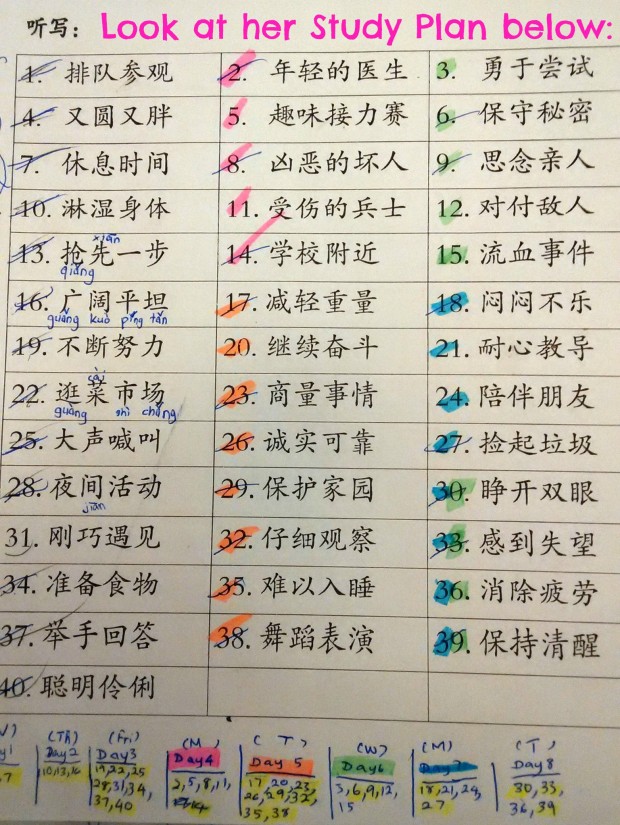 听写: Look at her Study Plan below:
1. 排队参观 2. 年轻的医生 3. 勇于尝试
4. 又圆又胖 5. 趣味接力赛 6. 保守秘密
7. 休息时间 8. 凶恶的坏人 9. 思念亲人
10. 淋湿身体 11. 受伤的兵士 12. 对付敌人
xiān
13. 抢先一步 14. 学校附近 15. 流血事件
qiǎng
16. 广阔平坦 17. 减轻重量 18. 闷闷不乐
guǎng kuò píng tǎn
19. 不断努力 20. 继续奋斗 21. 耐心教导
cài
22. 逛菜市场 23. 商量事情 24. 陪伴朋友
guàng shì chǎng
25. 大声喊叫 26. 诚实可靠 27. 捡起垃圾
28. 夜间活动 29. 保护家园 30. 睁开双眼
jiān
31. 刚巧遇见 32. 仔细观察 33. 感到失望
34. 准备食物 35. 难以入睡 36. 消除疲劳
37. 举手回答 38. 舞蹈表演 39. 保持清醒
40. 聪明伶俐
(Th) (Fri) (M) (T) (W) (M) (T)
Day2 Day3 Day4 Day 5 Day6 Day7 Day8
10,13,16 19,22,25 2,5,8,11, 17,20,23, 3,6,9,12, 18,21,24, 30,33,
28,31,34, 14 26,29,32, 15 27 36,39
37,40 35,38